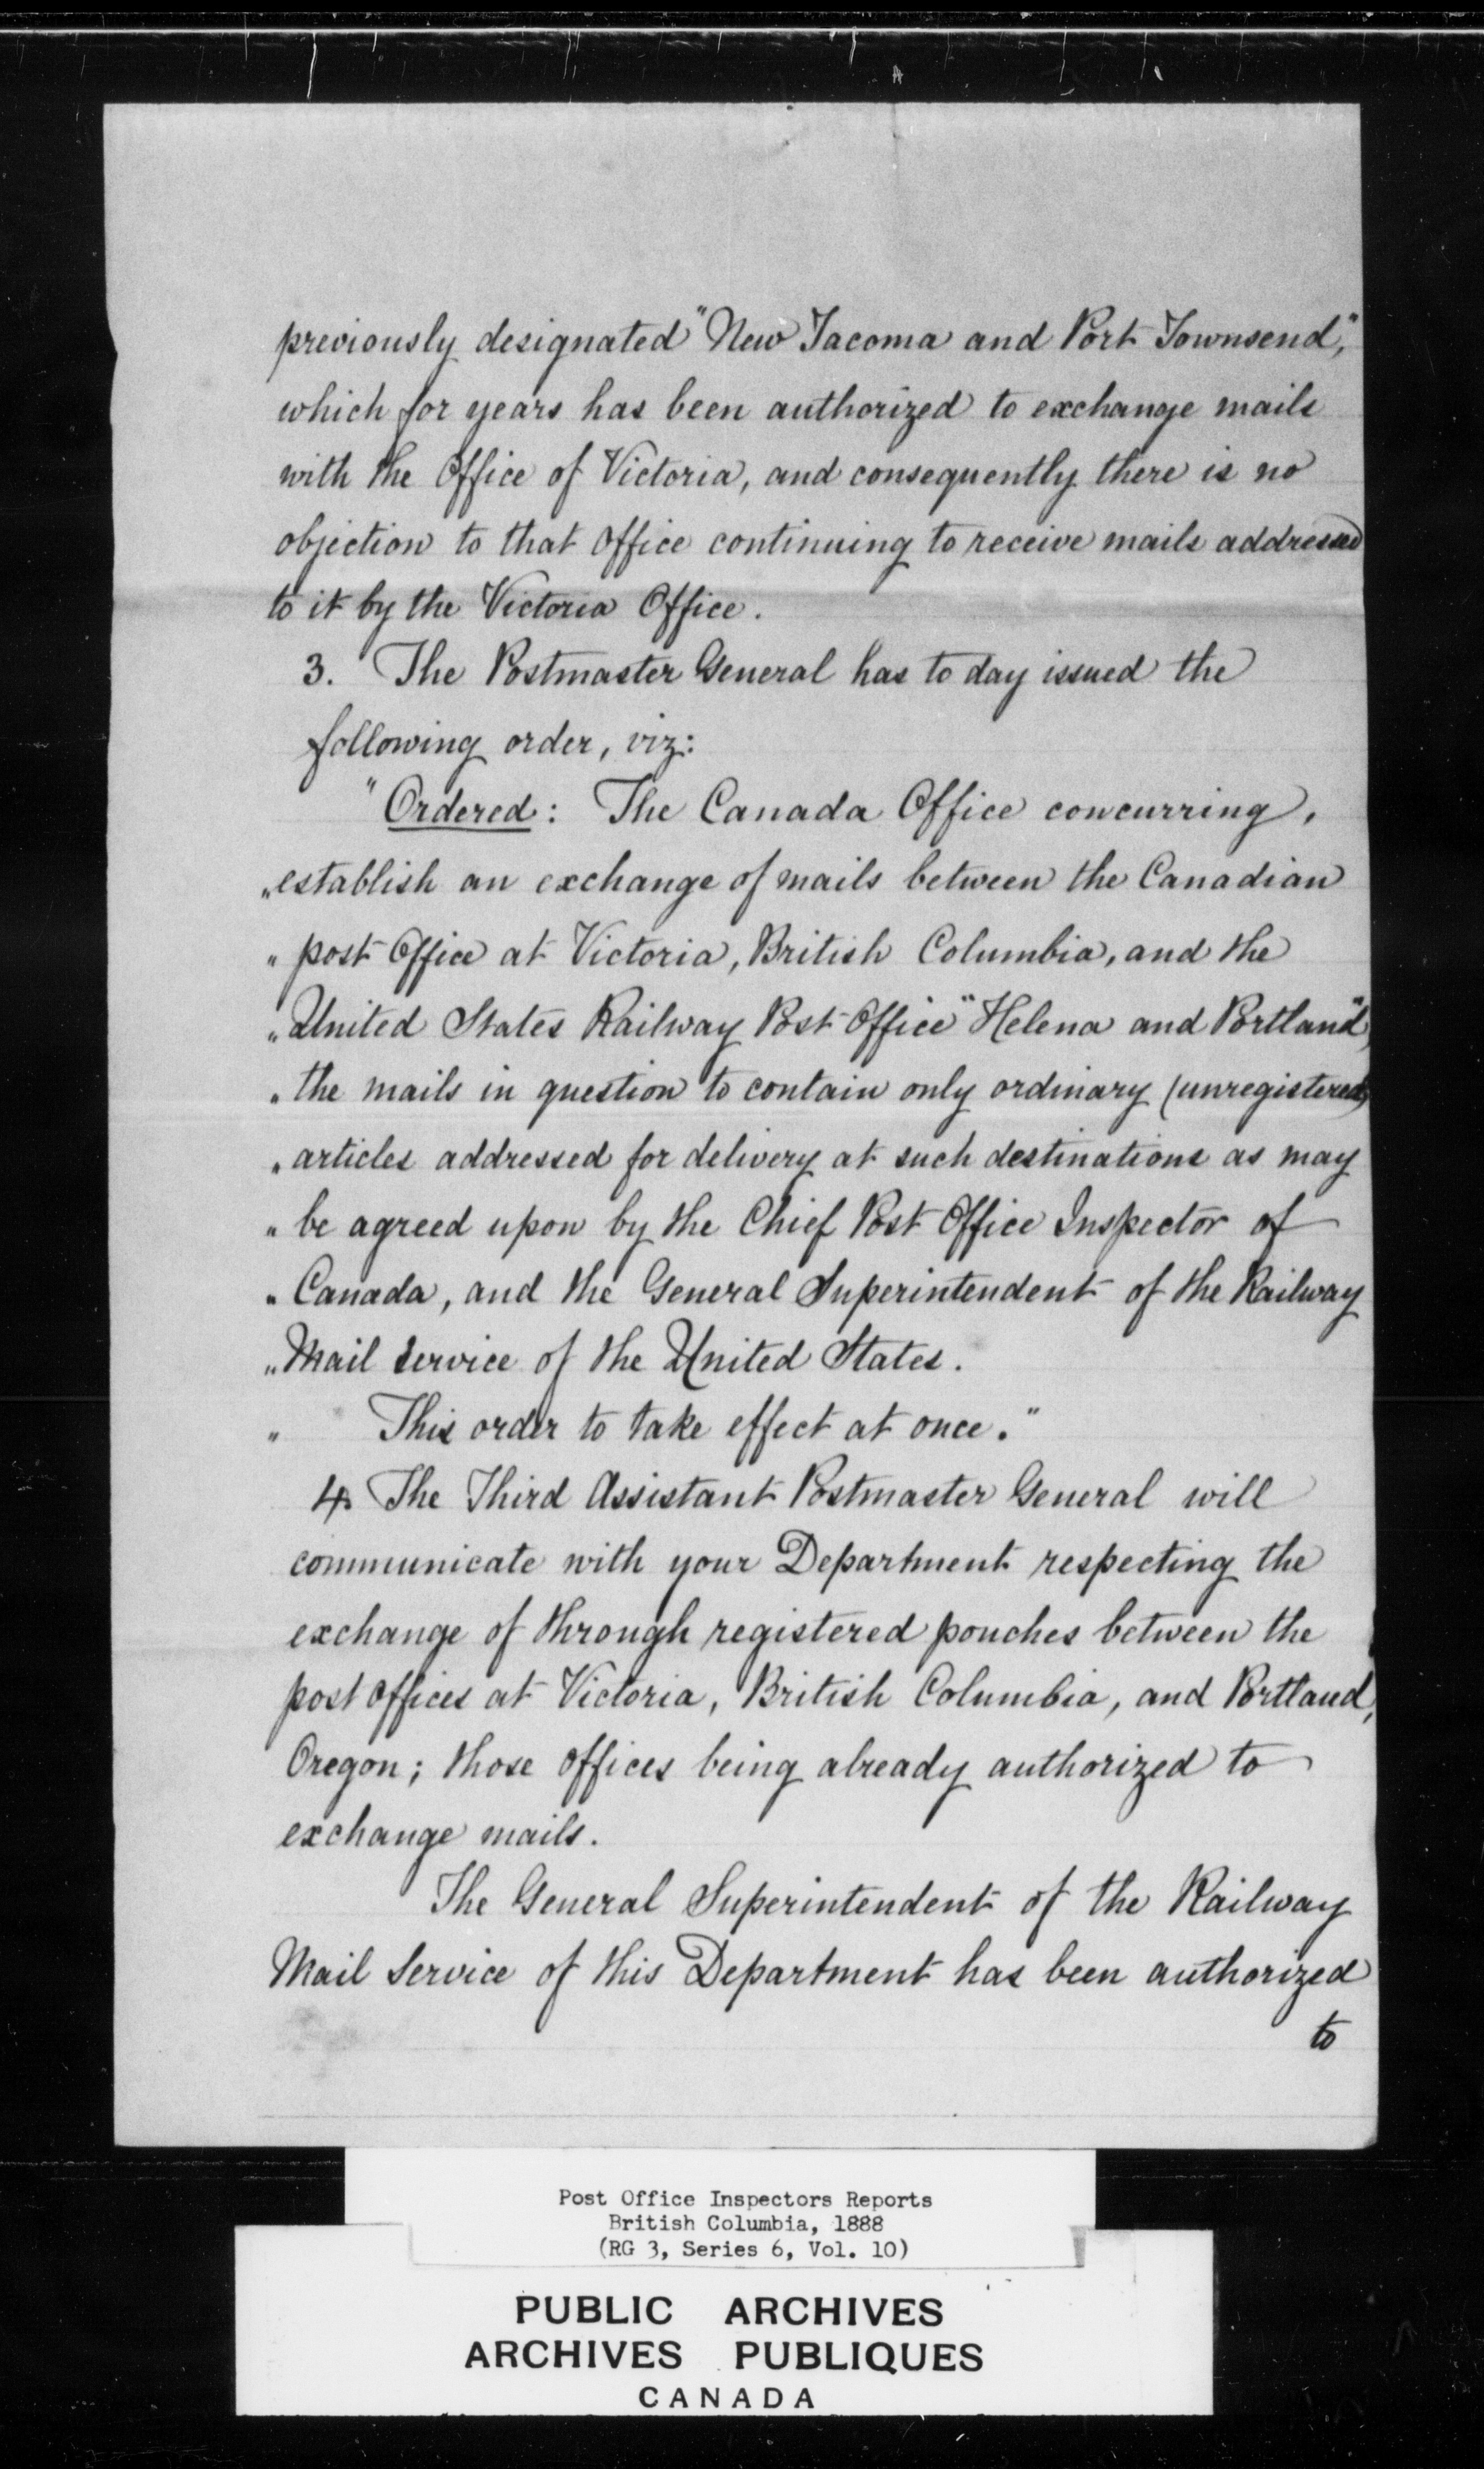 previously designated "New Tacoma and Port Townsend",
which for years has been authorized to exchange mails
with the Office of Victoria, and consequently there is no
objection to that Office continuing to receive mails addressed
to it by the Victoria Office.
3. The Postmaster General has to day issued the
following order, viz:
"Ordered: The Canada Office concurring,
"establish an exchange of mails between the Canadian
"post Office at Victoria, British Columbia, and the
"United States Railway Post Office "Helena and Portland",
"the mails in question to contain only ordinary (unregistered)
"articles addressed for delivery at such destinations as may
"be agreed upon by the Chief Post Office Inspector of
"Canada, and the General Superintendent of the Railway
"Mail Service of the United States.
" This order to take effect at once."
4. The Third Assistant Postmaster General will
communicate with your Department respecting the
exchange of through registered pouches between the
post offices at Victoria, British Columbia, and Portland,
Oregon; those offices being already authorized to
exchange mails.
The General Superintendent of the Railway
Mail Service of this Department has been authorized
to
Post Office Inspectors Reports
British Columbia, 1888
(RG 3, Series 6, Vol. 10)
PUBLIC ARCHIVES
ARCHIVES PUBLIQUES
CANADA